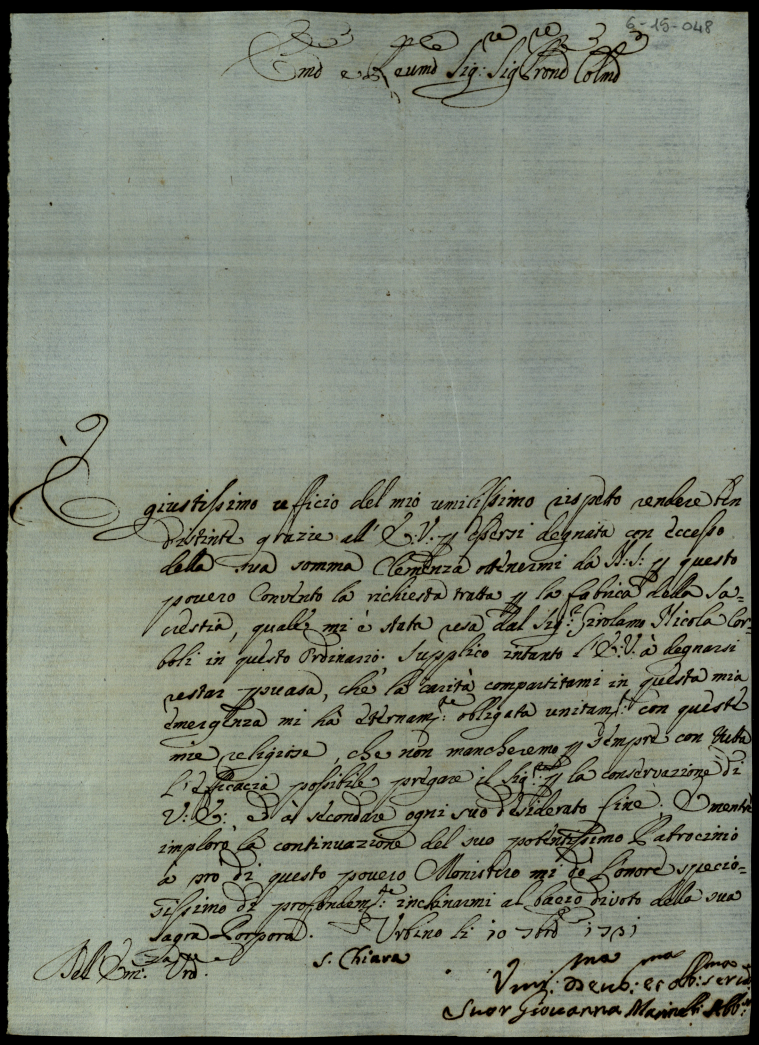 6-15-048
Em̃o e Reumo Sig: Sig Pron̄e Colmo
È giustissimo ufficio del mio umilissimo rispetto rendere
distinte grazie all' E: V: p essersi degnata con eccesso
della sua somma Clemenza ottenermi da N: S: p questo
povero Convento la richiesta tratta p la fabrica della Sa=
crestia, quale mi è stata resa dal Sig.r Girolamo Nicola Cor=
boli in questo Ordinario. Supplico intanto l'E: V: à degnarsi
restar psuasa, che la carità compartitami in questa mia
emergenza mi hà eternam.te obligata unitam.te con queste
mie religiose, che non mancheremo p sempre con tutta
l'efficacia possibile pregare il Sig.re p la conservazione di
V: E: ed à secondare ogni suo desiderato fine. E mentre
imploro la continuazione del suo potentissimo Patrocinio
à prò di questo povero Monistero mi dò l'onore specio=
sissimo di profondem.te inclinarmi al bacio divoto della sua
Sagra Porpora. Urbino li 10 7bre 1731
Dell' Em: Vra S. Chiara
Vmi:ma Deuo:ma et obb:ma ser:
Suor Giouanna Marinelli Abb: